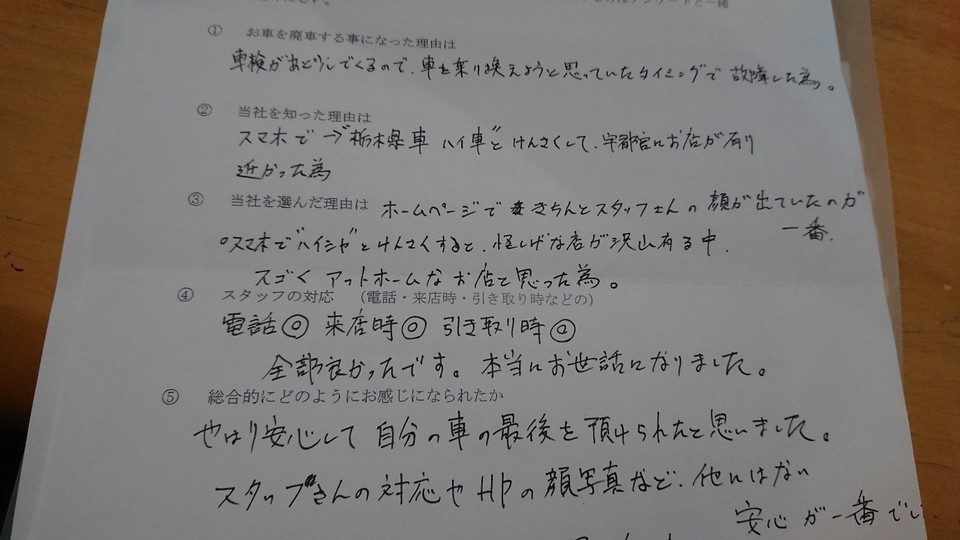 ① お車を廃車する事になった理由は
車検があと少しでくるので、車を乗り換えようと思っていたタイミングで故障した為。
② 当社を知った理由は
スマホで→"栃木県車 ハイ車"とけんさくして、宇都宮にお店が有り
近かった為
③ 当社を選んだ理由は ホームページできちんとスタッフさんの顔が出ていたのが
一番。
○スマホで"ハイシャ"とけんさくすると、怪しげな店が沢山有る中、
スゴく アットホームなお店と思った為。
④ スタッフの対応 （電話・来店時・引き取り時などの）
電話◎ 来店時◎ 引き取り時◎
全部良かったです。本当にお世話になりました。
⑤ 総合的にどのようにお感じになられたか
やはり安心して自分の車の最後を預けられたと思いました。
スタッフさんの対応やHPの顔写真など、他にはない
安心が一番でし